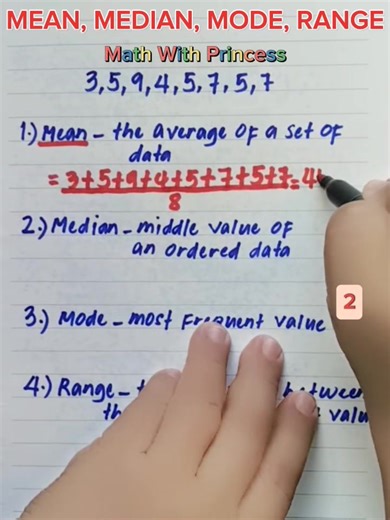 MEAN, MEDIAN, MODE, RANGE
Math With Princess
3,5,9,4,5,7,5,7
1.) Mean - the average of a set of
data
= 3+5+9+4+5+7+5+7 = 4
8
2.) Median - middle value of
an ordered data
2
3.) Mode - most Frequent value
4.) Range - between
valu